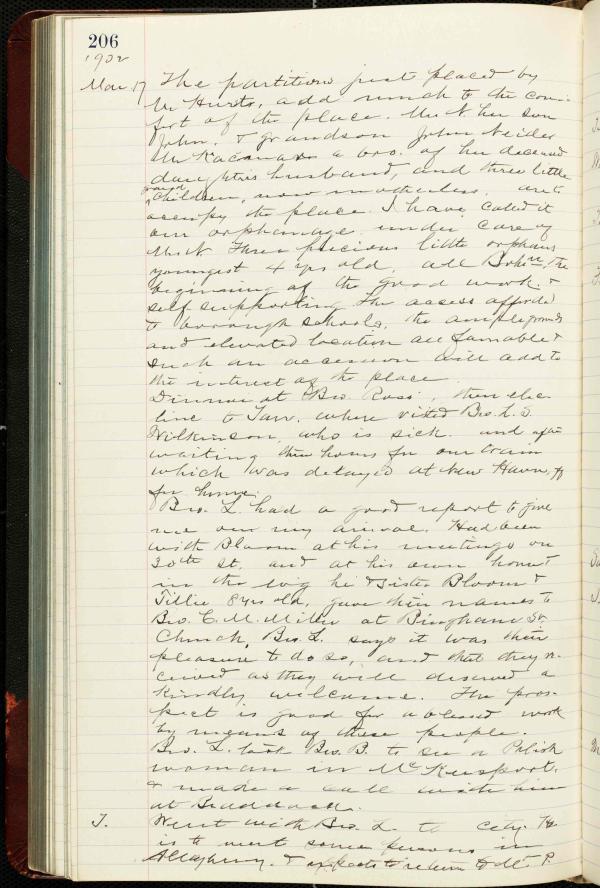 206
1902
Mar. 17 The partitions just placed by
Mr Hurst, add much to the com-
fort of the place. Mrs N. her son
John, & grandson John Neider
Mr a bro. of her deceased
daughters husband, and three little
grand
children, now motherless, are to
occupy the place. I have called it
our orphanage under care of
Mrs N. Three precious little orphans
youngest 4 yrs old, all Bohn. The
beginning of the good work. &
self supporting The access afforded
to borough schools, the ample grounds
and elevated location are favorable &
such an accession will add to
the interest of the place.
Dinner at Bro. Ross', then elec.
line to Tarr. where visited Bro. L. S.
Wilkinson, who is sick. and after
waiting three hours for our train
which was delayed at New Haven,
for home.
Bro. L. had a good report to give
me on my arrival. Had been
with Bloom at his meetings on
30th St. and at his own home &
in the he & sister Bloom &
Tillie, 8 yrs old, gave their names to
Bro. C. M. Miller at Bingham St.
Church, Bro. L. says it was their
pleasure to do so, and that they re-
ceived as they well deserved a
kindly welcome. The pros-
pect is good for a blessed work
by means of these people.
Bro. L. took Bro. B. to see a Polish
woman in McKeesport.
& made a call with him
at Braddock.
T. Went with Bro. L. to city. He
is to meet some persons in
Allegheny. & expects to return to Mt. P.